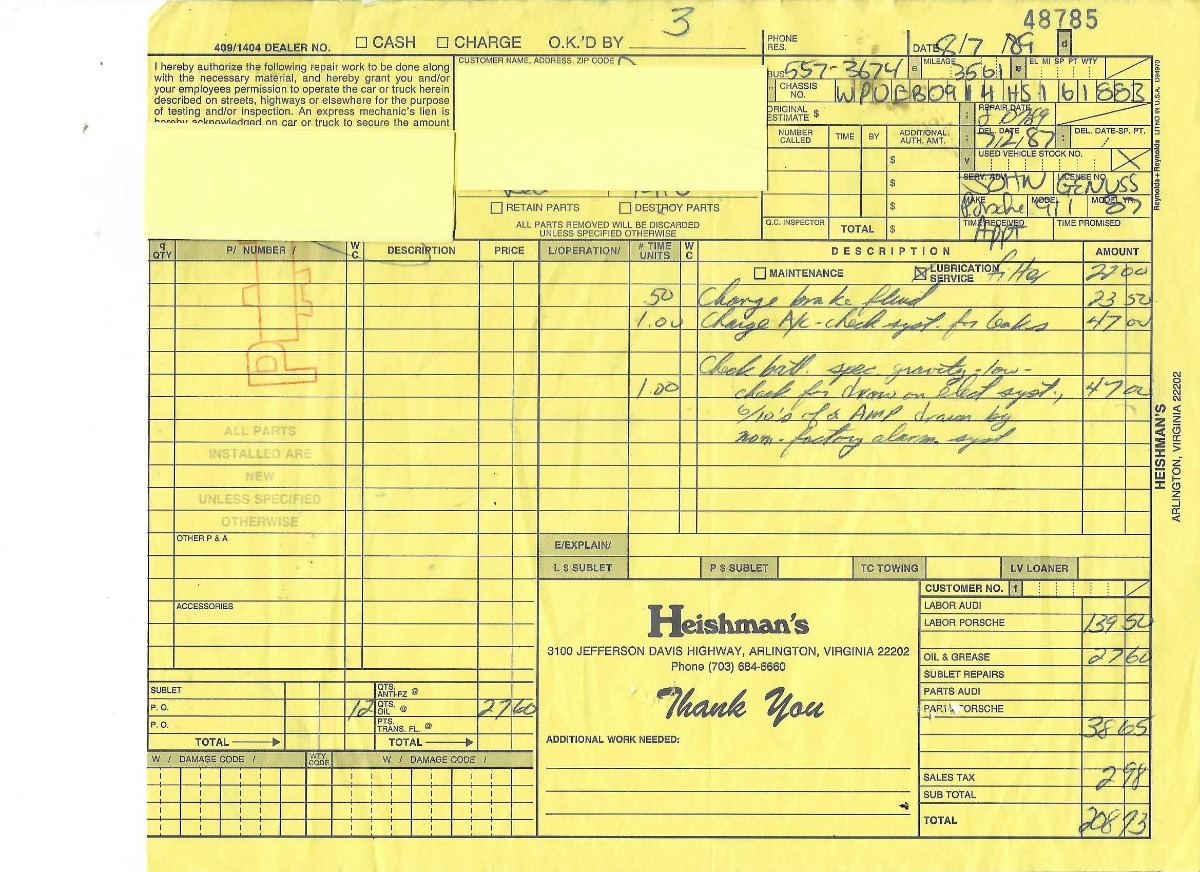 3
48785
409/1404 DEALER NO. ☐ CASH ☐ CHARGE O.K.'D BY
PHONE RES.
DATE 8/7 /89 d
I hereby authorize the following repair work to be done along
with the necessary material, and hereby grant you and/or
your employees permission to operate the car or truck herein
described on streets, highways or elsewhere for the purpose
of testing and/or inspection. An express mechanic's lien is
hereby acknowledged on car or truck to secure the amount
CUSTOMER NAME, ADDRESS, ZIP CODE
BUS. 557-3674
MILEAGE 3561 EL MI SP PT WTY
CHASSIS NO.
ORIGINAL ESTIMATE $
REPAIR DATE
NUMBER CALLED TIME BY ADDITIONAL AUTH. AMT.
DEL. DATE 7/2/87 DEL. DATE-SP. PT.
V USED VEHICLE STOCK NO.
$
$
$
SERV. ADV. LICENSE NO.
JOHN GENUSS
MAKE MODEL MODEL YR.
Porsche 911 87
☐ RETAIN PARTS ☐ DESTROY PARTS
ALL PARTS REMOVED WILL BE DISCARDED
UNLESS SPECIFIED OTHERWISE
Q.C. INSPECTOR TOTAL $
TIME RECEIVED TIME PROMISED
Appt
Reynolds + Reynolds LITHO IN U.S.A.
q QTY P/ NUMBER / W C. DESCRIPTION PRICE L/OPERATION/ # TIME UNITS W C DESCRIPTION AMOUNT
☐ MAINTENANCE ☒ LUBRICATION SERVICE filter 22 00
.50 Change brake fluid 23 50
1.00 Charge A/c - check syst. for leaks 47 00
Check batt. spec gravity - low -
1.00 check for draw on elect syst., 47 00
6/10's of a AMP drawn by
non-factory alarm syst
ALL PARTS
INSTALLED ARE
NEW
UNLESS SPECIFIED
OTHERWISE
OTHER P & A
ACCESSORIES
HEISHMAN'S
ARLINGTON, VIRGINIA 22202
E/EXPLAIN/
L $ SUBLET P $ SUBLET TC TOWING LV LOANER
Heishman's
3100 JEFFERSON DAVIS HIGHWAY, ARLINGTON, VIRGINIA 22202
Phone (703) 684-6660
Thank You
ADDITIONAL WORK NEEDED:
CUSTOMER NO. 1
LABOR AUDI
LABOR PORSCHE 139 50
OIL & GREASE 27 60
SUBLET REPAIRS
PARTS AUDI
PARTS PORSCHE
38 65
SALES TAX 2 98
SUB TOTAL
TOTAL 208 73
SUBLET QTS. ANTI-FZ @
P. O. 12 QTS. OIL @ 27 60
P. O. PTS. TRANS. FL. @
TOTAL TOTAL
W / DAMAGE CODE / WTY. CODE W / DAMAGE CODE /